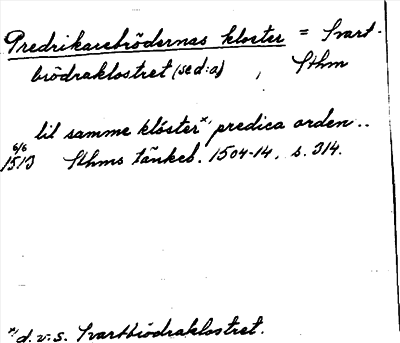 Predrikarebrödernas kloster = Svart-
brödraklostret (se d:o) , Sthm
til samme klöster*) predica orden..
6/6
1513 Sthms tänkeb. 1504-14, s. 314.
*) d.v.s. Svartbrödraklostret.